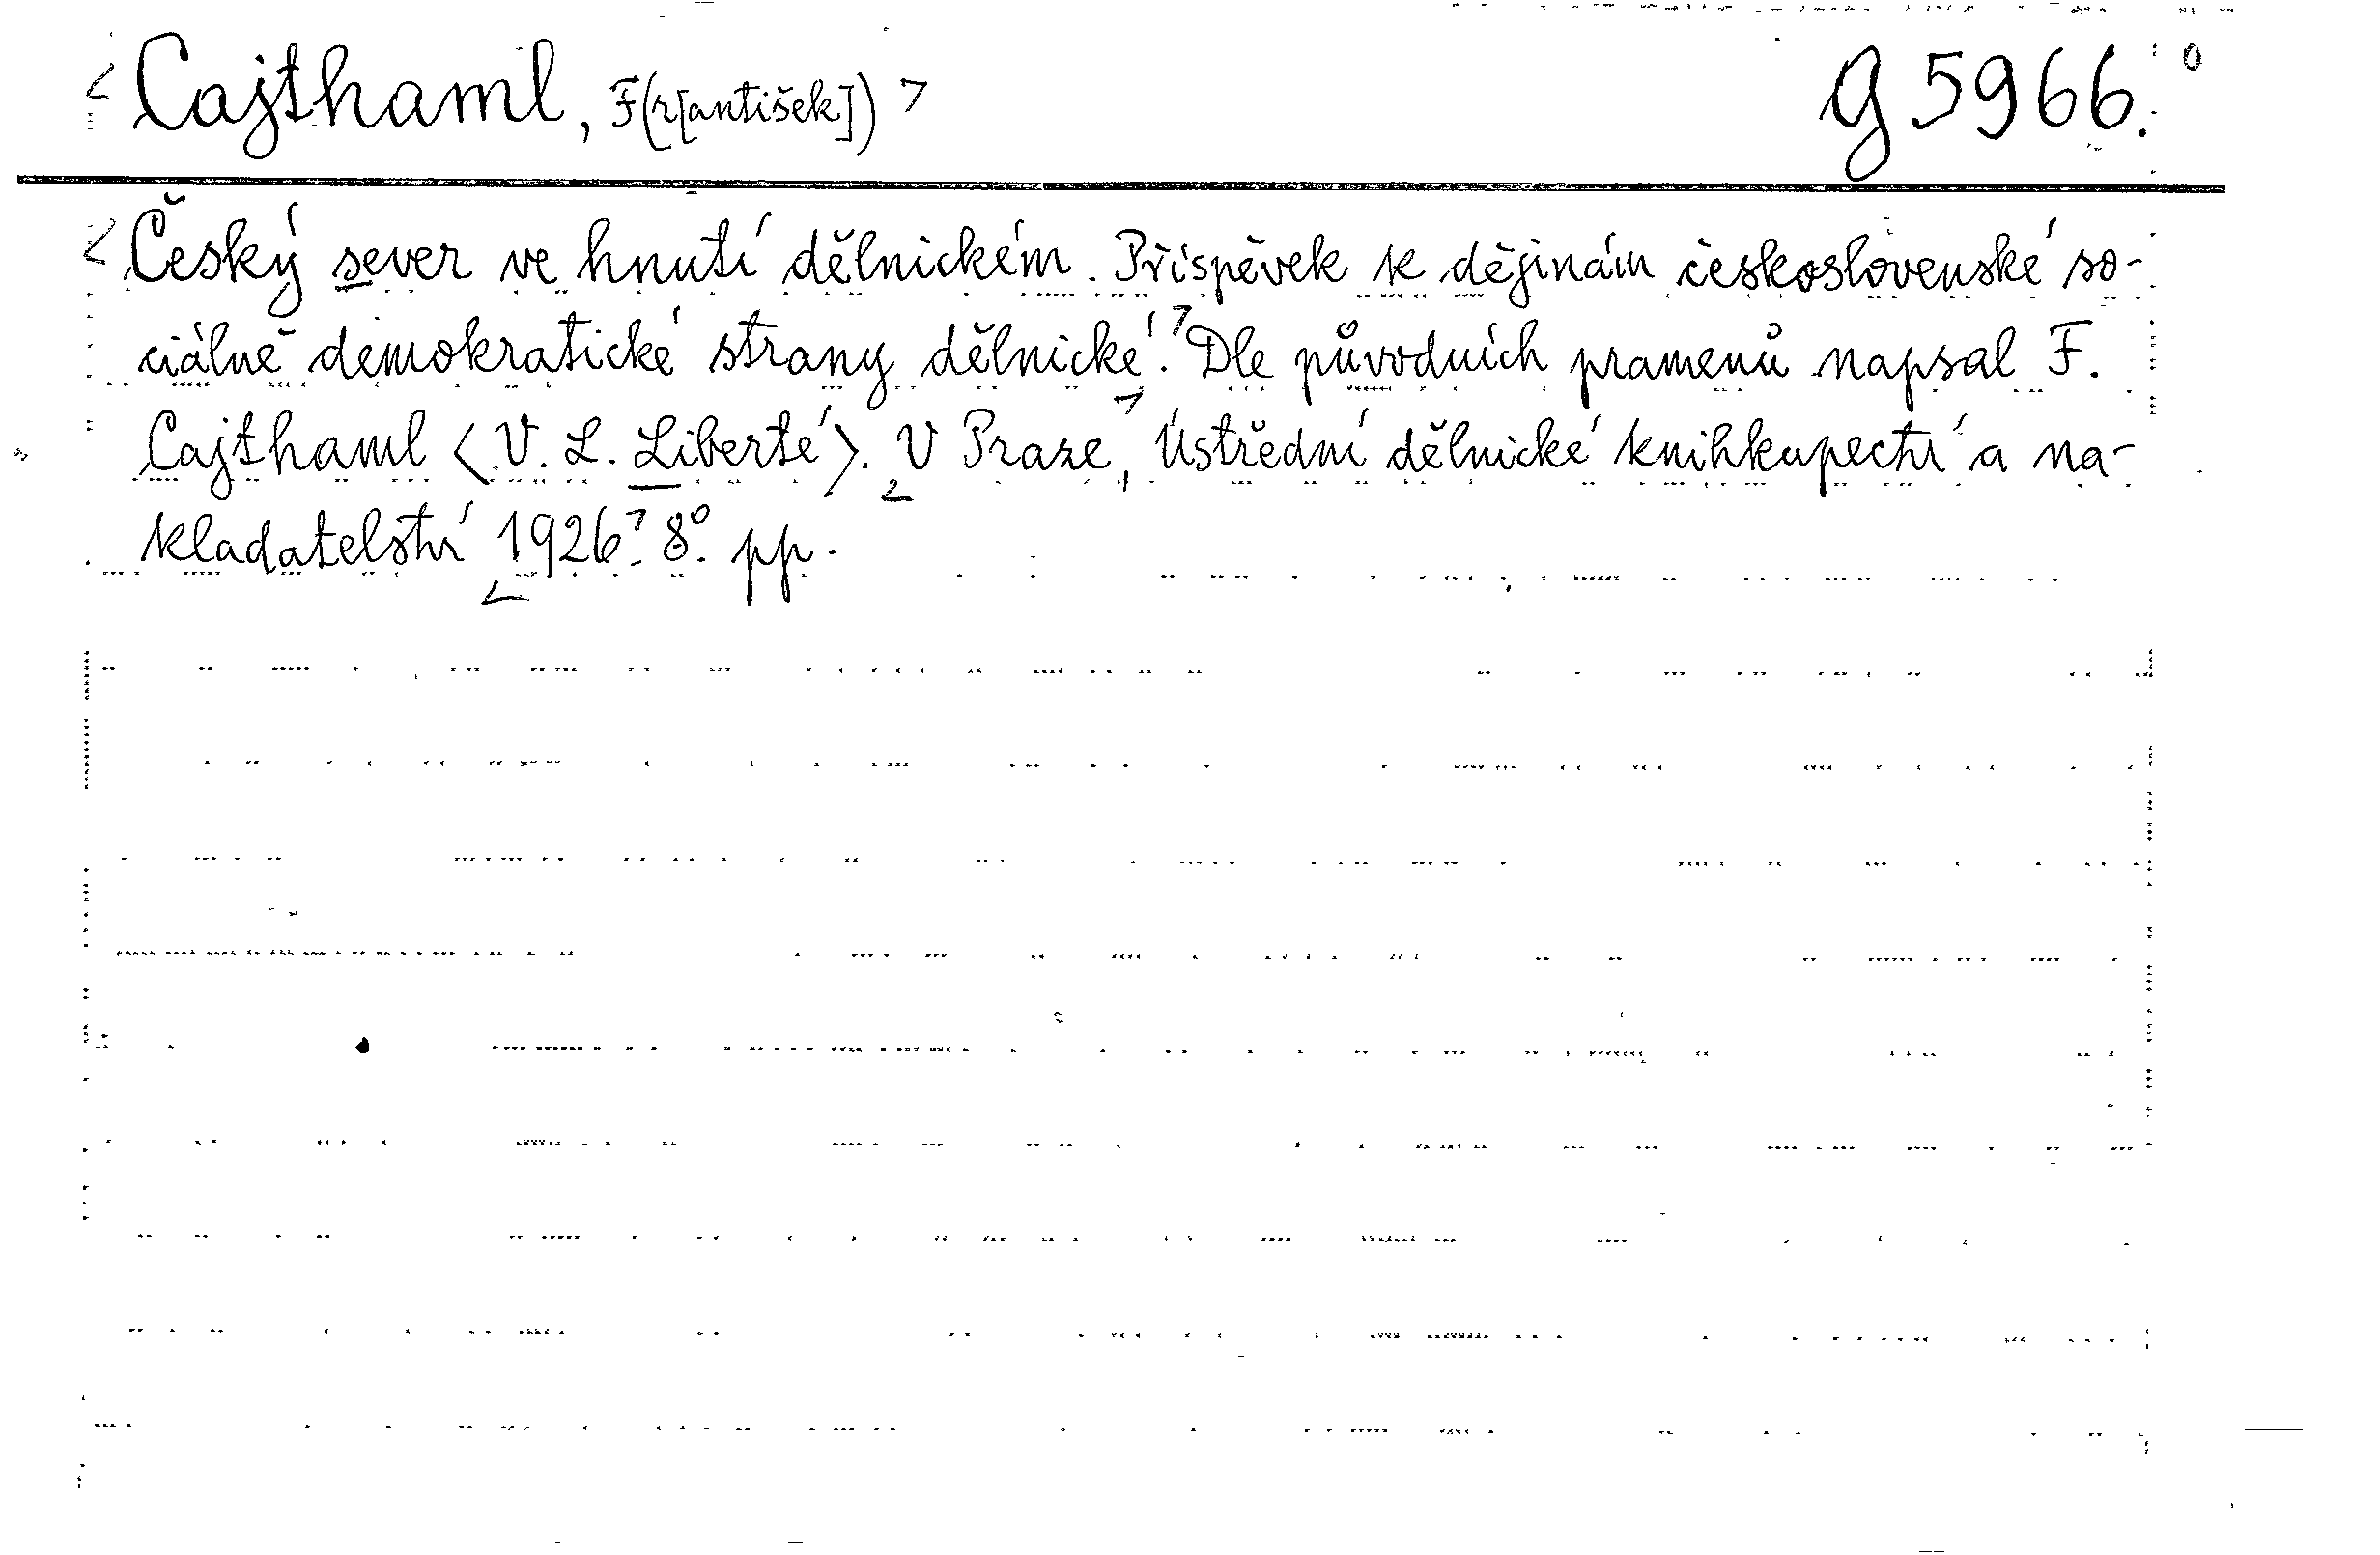 <Cajthaml, F(r[antišek])> g 5966.⁰
<Český sever ve hnutí dělnickém. Příspěvek k dějinám československé so-
ciálně demokratické strany dělnické.> Dle původních pramenů napsal F.
Cajthaml <V. L. Liberté>. <V Praze>, Ústřední dělnické knihkupectví a na-
kladatelství <1926>. 8⁰. pp.